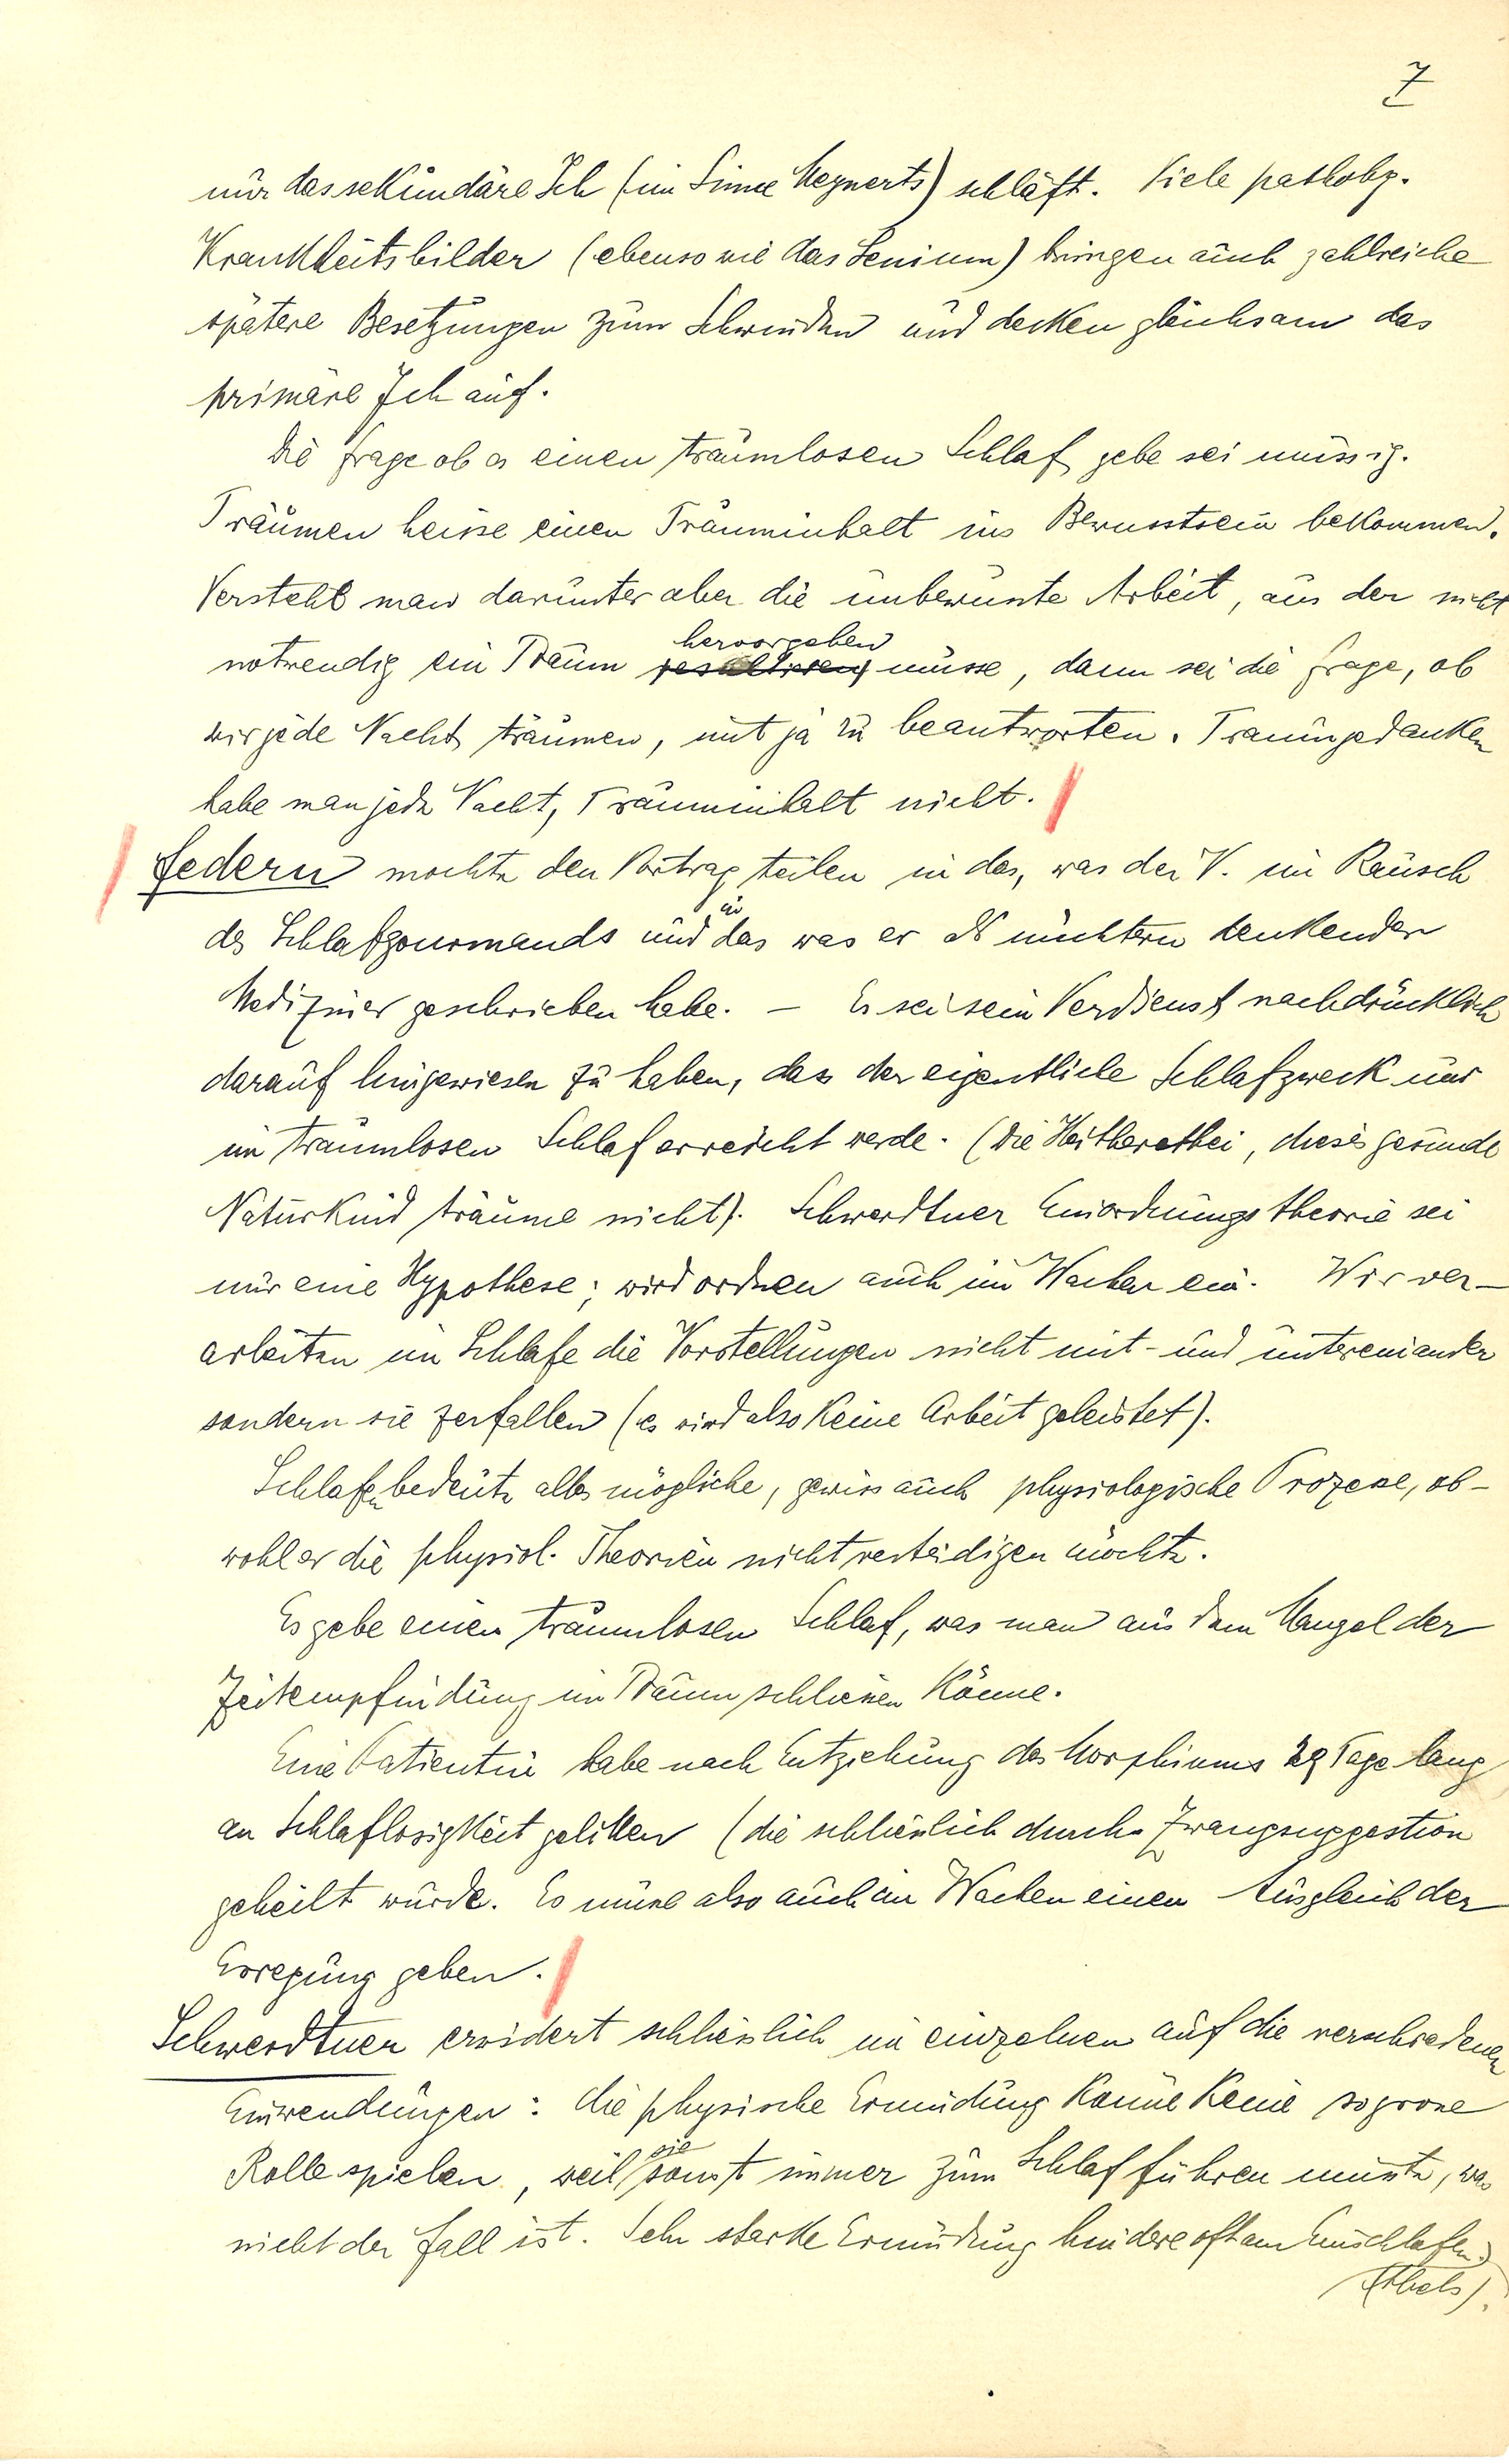 7
nur das sekundäre Ich (im Sinne Meynerts) schläft. Viele patholog.
Krankheitsbilder (ebenso wie das Senium) bringen auch zahlreiche
spätere Besetzungen zum Schwinden und decken gleichsam das
primäre Ich auf.
Die Frage ob es einen traumlosen Schlaf gebe sei müssig.
Träumen heisse einen Trauminhalt ins Bewusstsein bekommen.
Versteht man darunter aber die unbewusste Arbeit, aus der nicht
hervorgehen
notwendig ein Traum resultiren müsse, dann sei die Frage, ob
wir jede Nacht träumen, mit ja zu beantworten. Traumgedanken
habe man jede Nacht, Trauminhalt nicht.
Federn möchte den Vortrag teilen in das, was der V. im Rausch
in
des Schlafgourmands und das was er als nüchtern denkender
Mediziner geschrieben habe. – Es sei sein Verdienst nachdrücklich
darauf hingewiesen zu haben, dass der eigentliche Schlafzweck nur
im traumlosen Schlaf erreicht werde. (Die Hitherethei, dieses gesunde
Naturkind träume nicht). Schwerdtner Einordnungstheorie sei
nur eine Hypothese; wird ordnen auch im Wachen ein. Wir ver-
arbeiten im Schlafe die Vorstellungen nicht mit- und untereinander
sondern sie zerfallen (es wird also keine Arbeit geleistet).
Schlafen bedeute alles mögliche, gewiss auch physiologische Prozesse, ob-
wohl er die physiol. Theorien nicht verteidigen möchte.
Es gebe einen traumlosen Schlaf, was man aus dem Mangel der
Zeitempfindung im Traum schliessen könne.
Eine Patientin habe nach Entziehung des Morphiums 29 Tage lang
an Schlaflosigkeit gelitten (die schliesslich durch Zwangsuggestion
geheilt wurde. Es müsse also auch im Wachen einen Ausgleich der
Erregung geben.
Schwerdtner erwidert schliesslich im einzelnen auf die verschiedenen
Einwendungen: die physische Ermüdung könne keine so grosse
sie
Rolle spielen, weil sonst immer zum Schlaf führen müsste, was
nicht der Fall ist. Sehr starke Ermüdung hindere oft am Einschlafen